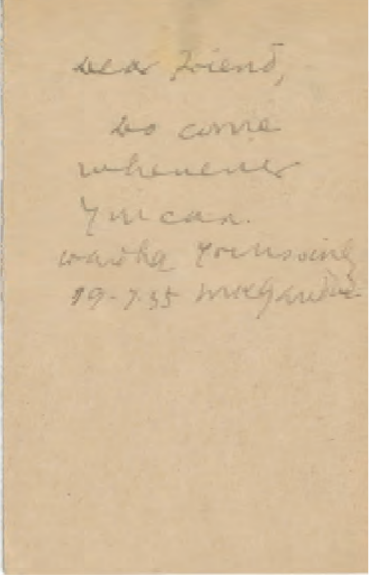 Dear friend,
Do come
whenever
you can.
Wardha Yours sincly
19-7-35 MKGandhi